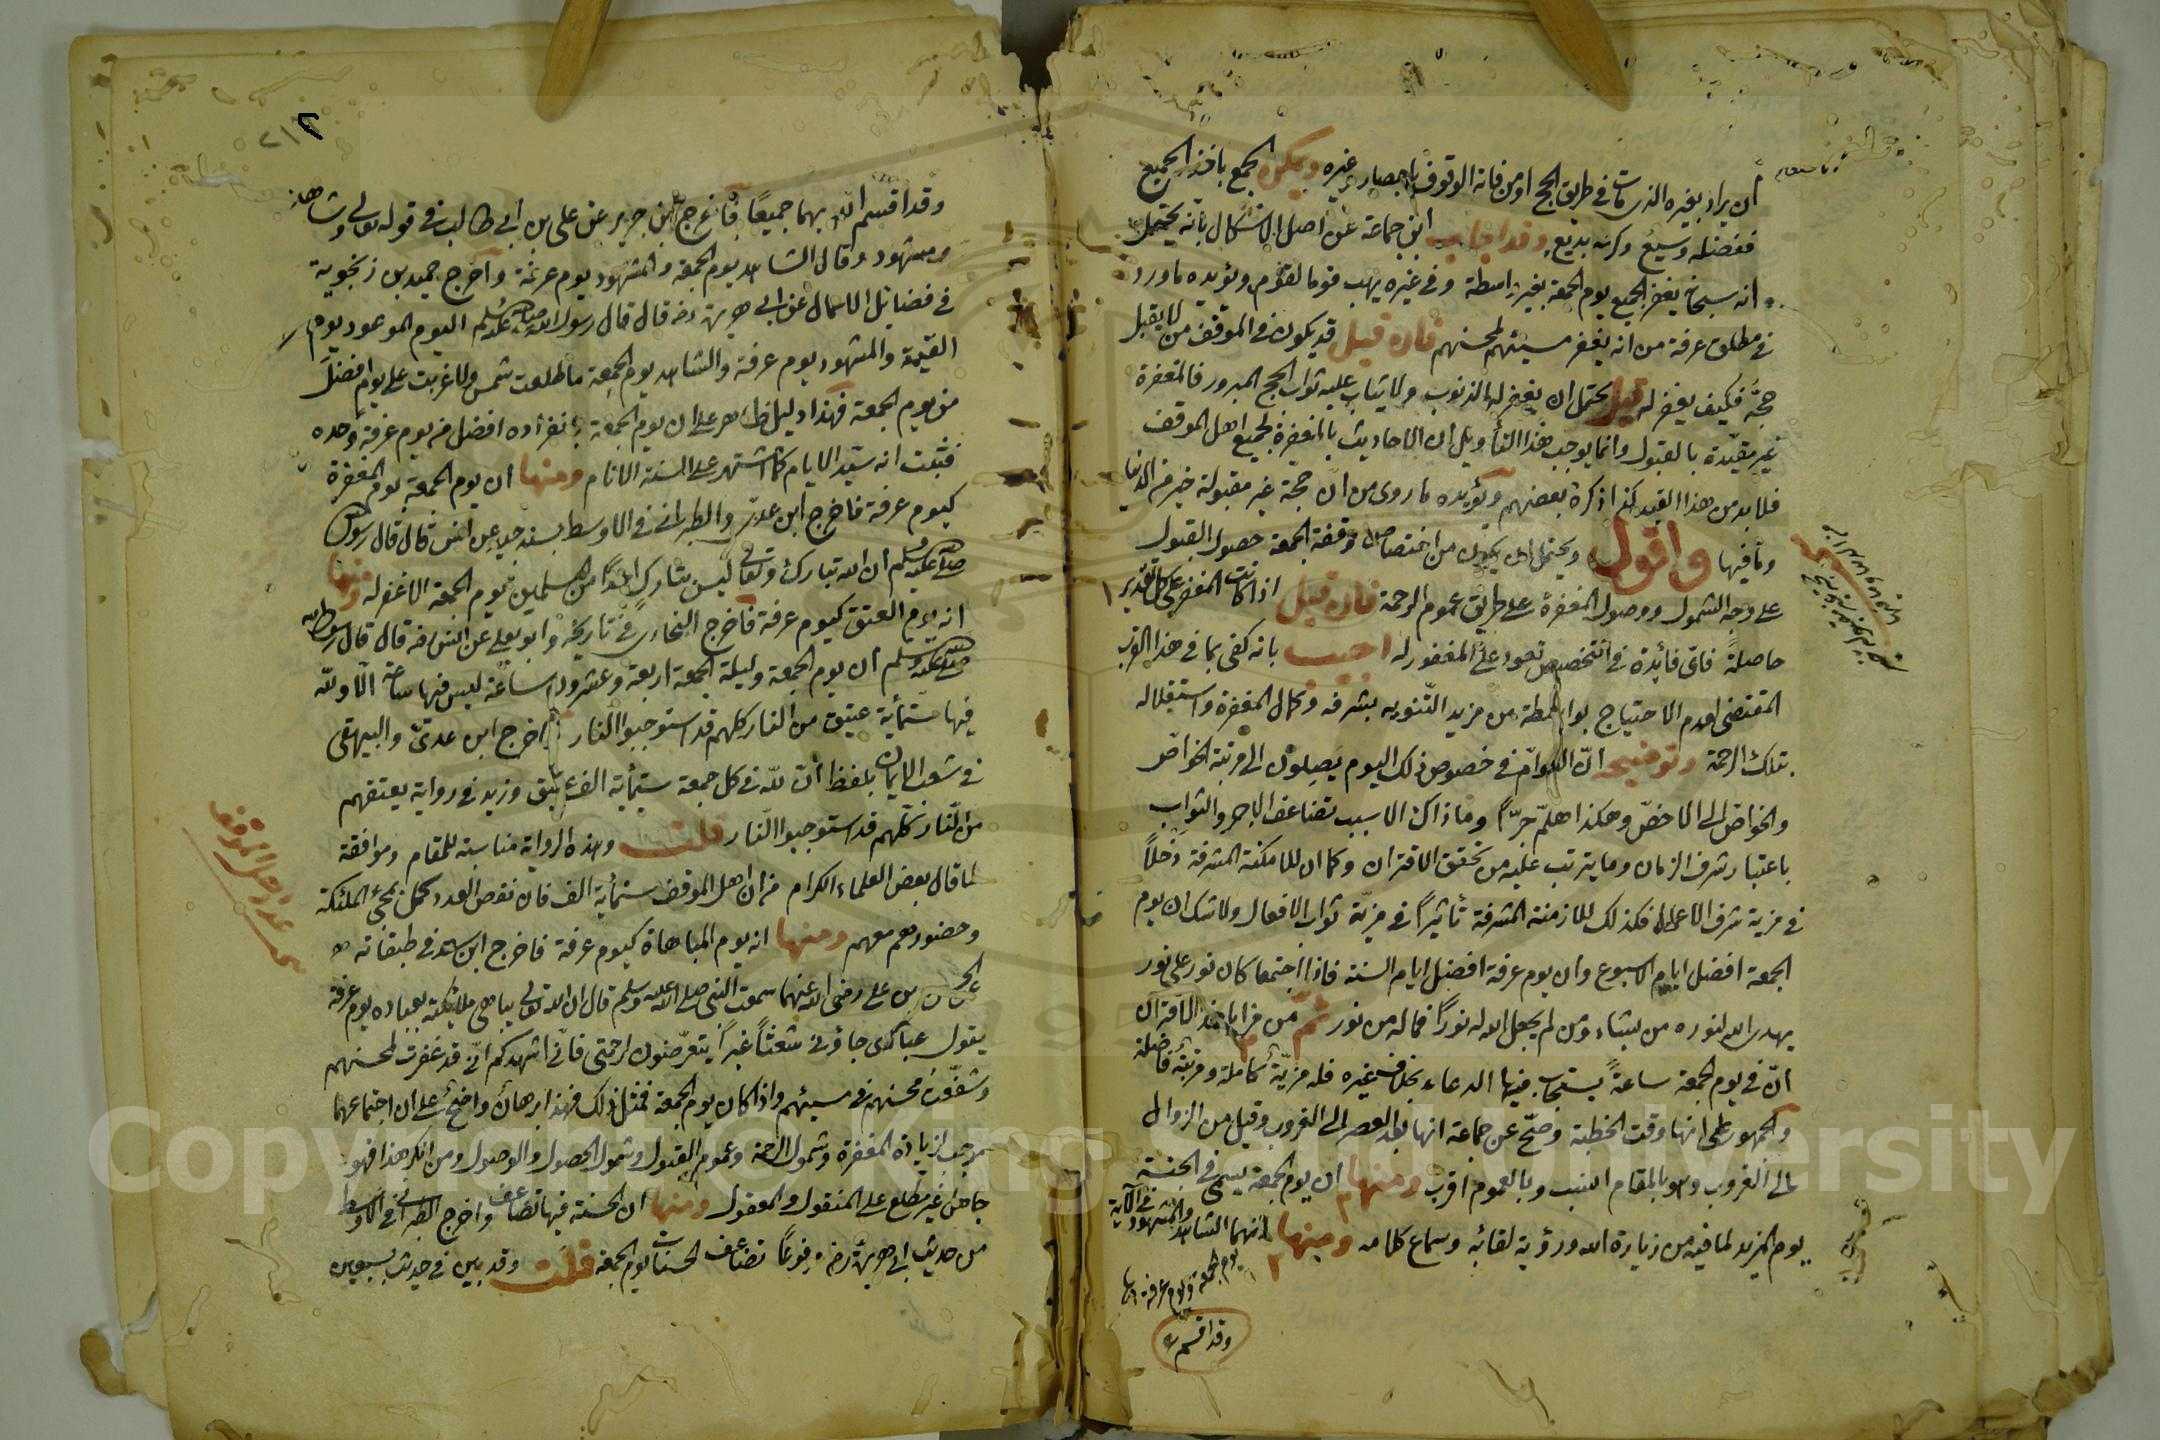 أن يراد بغيره الذي مات في طريق الحج او من فاته الوقوف باحصار وغيره ويمكن الجمع بأخذ الجميع
ففضله وسيع وكرمه بديع وقد اجاب ابن جماعة عن اصل الاشكال بأنه يحتمل
انه سبحانه يغفر الجميع يوم الجمعة بغير واسطة وفي غيره يهب قوما لقوم ويؤيده ما ورد
في مطلق عرفة من انه يغفر مسيئهم لمحسنهم فان قيل قد يكون في الموقف من لا يقبل
حجّه فكيف يغفر له قيل يحتمل ان يغفر له الذنوب ولا يثاب عليه ثواب الحج المبرور فالمغفرة
غير مقيّدة بالقبول وانما يوجب هذا التأويل ان الاحاديث بالمغفرة لجميع اهل الموقف
فلا بد من هذا القيد كذا ذكره بعضهم ويؤيده ما روى من ان حجة غير مقبولة خير من الدنيا
وما فيها واقول ويحتمل ان يكون من اختصاص وقفة الجمعة حصول القبول
على وجه الشمول ووصول المغفرة على طريق عموم الرحمة فان قيل اذا كانت المغفرة على كل تقدير
حاصلة فاىّ فائدة في التخصيص تعود على المغفور له اجيب بانه كفى بما في هذا القرب
المقتضى لعدم الاحتياج بواسطة من مزيد التّنويه بشرفه وكمال المغفرة واستقلاله
بتلك الرحمة وتوضيحه انّ العوامّ في خصوص ذلك اليوم يصلون الى مرتبة الخواصّ
والخواص الى الاخصّ وهكذا هلمّ جرّا وما ذاك الا بسبب تضاعف الاجر والثواب
باعتبار شرف الزمان وما يترتب عليه من تحقق الاقتران وكما ان للامكنة المشرفة دخلاً
في مزية شرف الاعمال فكذلك للازمنة المشرفة تأثيرًا في مزيّة ثواب الافعال ولا شك ان يوم
الجمعة افضل ايام الاسبوع وان يوم عرفة افضل ايام السنة فاذا اجتمعا كان نور على نور
يهدى الله لنوره من يشاء ومن لم يجعل الله له نورًا فما له من نور ثمّ من مزايا هذا الاقتران
انّ في يوم الجمعة ساعةً يستجاب فيها الدعاء بخلاف غيره فله مزيّة كاملة ومرتبة فاضلة
والجمهور على انها وقت الخطبة وصحّ عن جماعة انها بعد العصر الى الغروب وقيل من الزوال
الى الغروب وهو بالمقام انسب وبالعموم اقرب ومنها ان يوم الجمعة يسمى في الجنة
يوم المزيد لما فيه من زيارة الله ورؤية لقائه وسماع كلامه ومنها انهما الشاهد والمشهود في الآية
يوم الجمعة ويوم عرفة
وقد اقسم
٢١٢
وقد اقسم الله بهما جميعًا فأخرج ابن جرير عن على بن أبي طالب في قوله تعالى وشاهد
ومشهود وقال الشاهد يوم الجمعة والمشهود يوم عرفة وأخرج حميد بن زنجوية
في فضائل الاعمال عن ابى هريرة رضه قال قال رسول الله صلى الله عليه وسلم اليوم الموعود يوم
القيمة والمشهود يوم عرفة والشاهد يوم الجمعة ما طلعت شمس ولا غربت على يوم افضل
من يوم الجمعة فهذا دليل ظاهر على ان يوم الجمعة بانفراده افضل من يوم عرفة وحده
فثبت انه سيّد الايام كما اشتهر على السنة الانام ومنها ان يوم الجمعة يوم المغفرة
كيوم عرفة فاخرج ابن عدىّ والطبراني في الاوسط بسند جيد عن انس قال قال رسول الله
صلى الله عليه وسلم أن الله تبارك وتعالى ليس بتارك احدًا من المسلمين يوم الجمعة الا غفر له ومنها
انه يوم العتق كيوم عرفة فأخرج البخاري في تاريخه وابو يعلى عن انس رضه قال قال رسول الله
صلى الله عليه وسلم أن يوم الجمعة وليلة الجمعة اربعة وعشرون ساعة ليس فيها ساعة الا ولله
فيها ستّمأية عتيق من النار كلهم قد استوجبوا النار واخرج ابن عدىّ والبيهقى
في شعب الايمان بلفظ أن لله في كل جمعة ستمأية الف عتيق وزيد في رواية يعتقهم
من النّار كلّهم قد استوجبوا النّار قلت وهذه الرواية مناسبة للمقام وموافقة
لما قال بعض العلماء الكرام من ان اهل الموقف ستمأية الف فان نقص العدد كمل بمجئ الملئكة
وحضورهم معهم ومنها انه يوم المباهاة كيوم عرفة فاخرج ابن سعد في طبقاته
عن الحسن بن على رضى الله عنهما سمعت النبى صلى الله عليه وسلم قال ان الله تعالى يباهى ملائكته بعباده يوم عرفة
يقول عبادى جاؤنى شعثًا غبرًا يتعرّضون لرحمتى فانّى اشهدكم انّى قد غفرت لمحسنهم
وشفّعت محسنهم في مسيئهم واذا كان يوم الجمعة فمثل ذلك فهذا برهان واضح على ان اجتماعهما
موجب لزيادة المغفرة وشمول الرحمة وعموم القبول وشمول الحصول والوصول ومن انكر هذا فهو
جاهل غير مطلع على المنقول والمعقول ومنها ان الحسنة فيها تضاعف واخرج الطبرانى في الاوسط
من حديث ابى هريرة رضه مرفوعًا تضاعف الحسنات يوم الجمعة قلت وقد بين في حديث بسبعين
عدد اهل الموقف